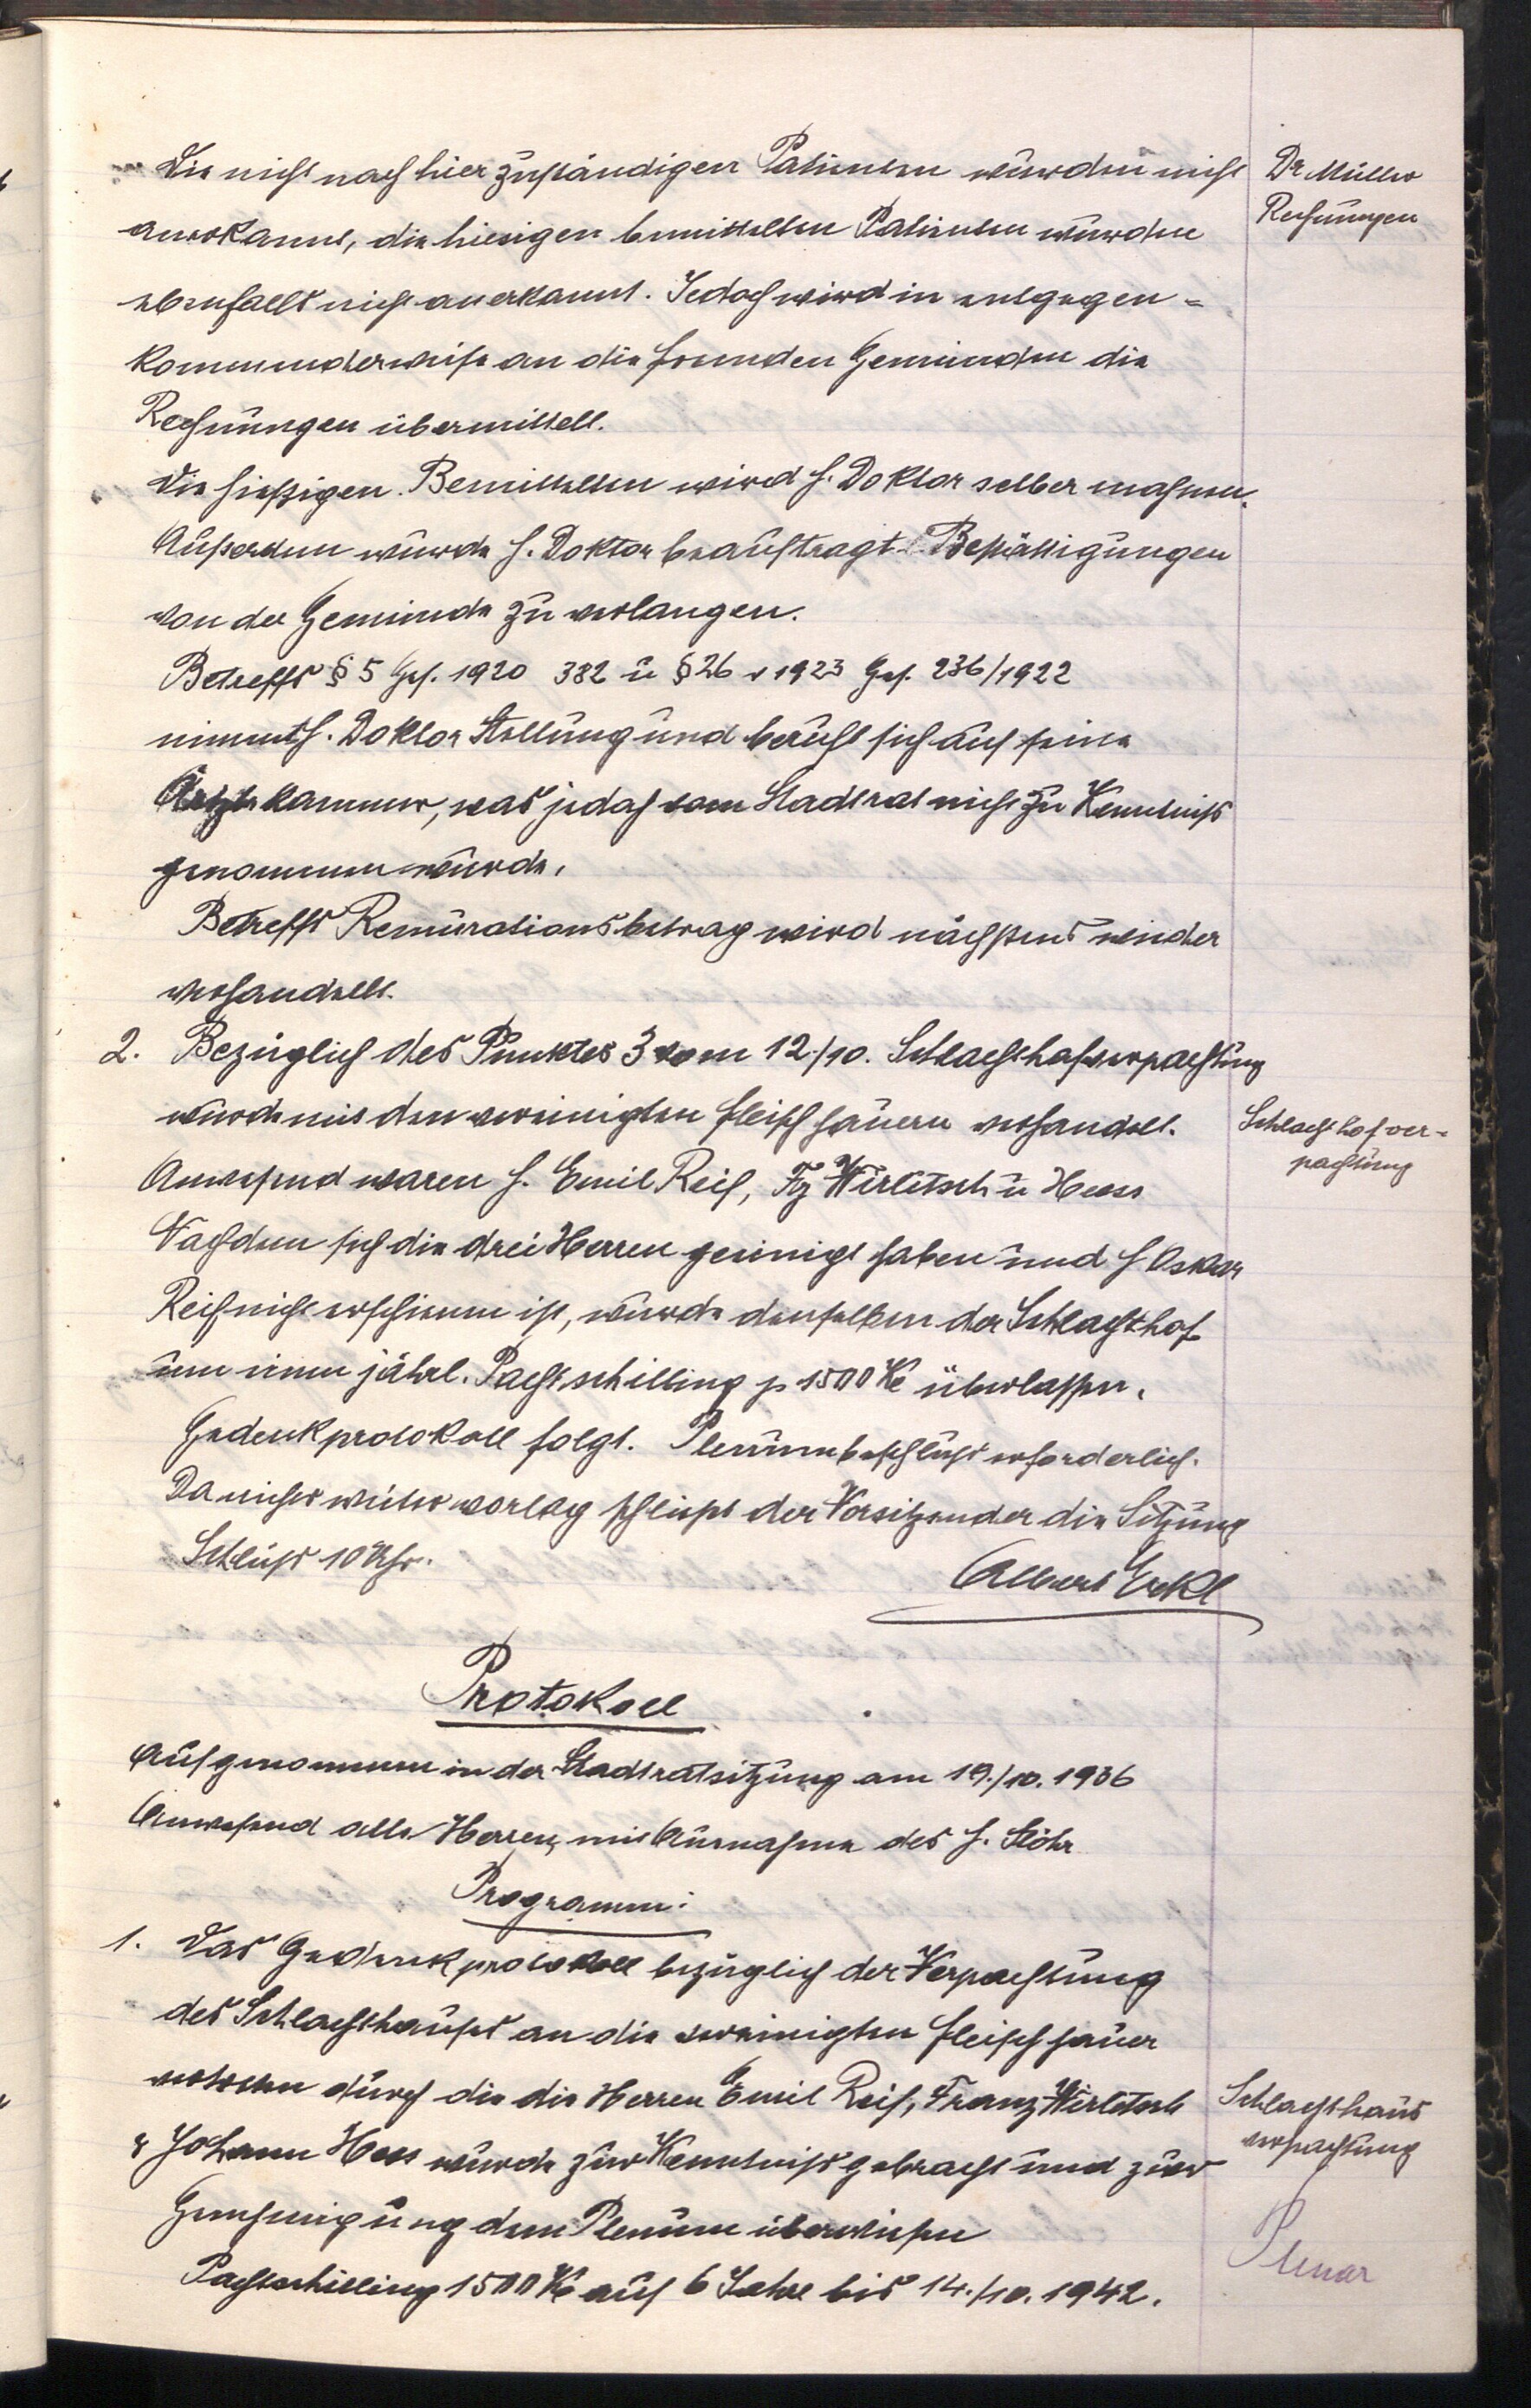 Die nicht nach hier zuständigen Patienten wurden nicht
anerkannt, die hiesigen bemittelten Patienten wurden
ebenfalls nicht anerkannt. Jedoch wird in entgegen-
kommenderweise an die fremden Gemeinden die
Rechnungen übermittelt.
Die hießigen Bemittelten wird H. Doktor selber mahnen.
Außerdem wurde H. Doktor beauftragt Bestättigungen
von der Gemeinde zu verlangen.
Betreffs § 5 Ges. 1920 382 u § 26 v 1923 Ges. 236/1922
nimmt H. Doktor Stellung und beruft sich auf seine
Ärztekammer, was jedoch vom Stadtrat nicht zu Kenntniß
genommen wurde.
Betreffs Remurationsbetrag wird nächstens wieder
verhandelt.
Dr Müller
Rechnungen
2. Bezüglich des Punktes 3 vom 12./10. Schlachthofverpachtung
wurde mit den vereinigten Fleischhauern verhandelt.
Anwesend waren H. Emil Reif, Fz Wirlitsch u Hess
Nachdem sich die drei Herren geeinigt haben und H Oskar
Reif nicht erschienen ist, wurde denselben der Schlachthof
um einen jährl. Pachtschilling p 1500 Kč überlassen.
Gedenkprotokoll folgt. Plenumbeschluß erforderlich.
Da nichts weiter vorlag schließt der Vorsitzender die Sitzung
Schluß 10 Uhr.
Albert Erkl
Schlachthofver-
pachtung
Protokoll
Aufgenommen in der Stadtratsitzung am 19./10. 1936
Anwesend alle Herren, mit Ausnahme des H. Stöhr
Programm:
1. Das Gedenkprotokoll bezüglich der Verpachtung
des Schlachthauses an die vereinigten Fleischhauer
vertreten durch die die Herren Emil Reif, Franz Wirlitsch
& Johann Hess wurde zur Kenntniß gebracht und zur
Genehmigung dem Plenum überwiesen
Pachtschilling 1500 Kč auf 6 Jahre bis 14./10. 1942.
Schlachthaus
verpachtung
Plenar